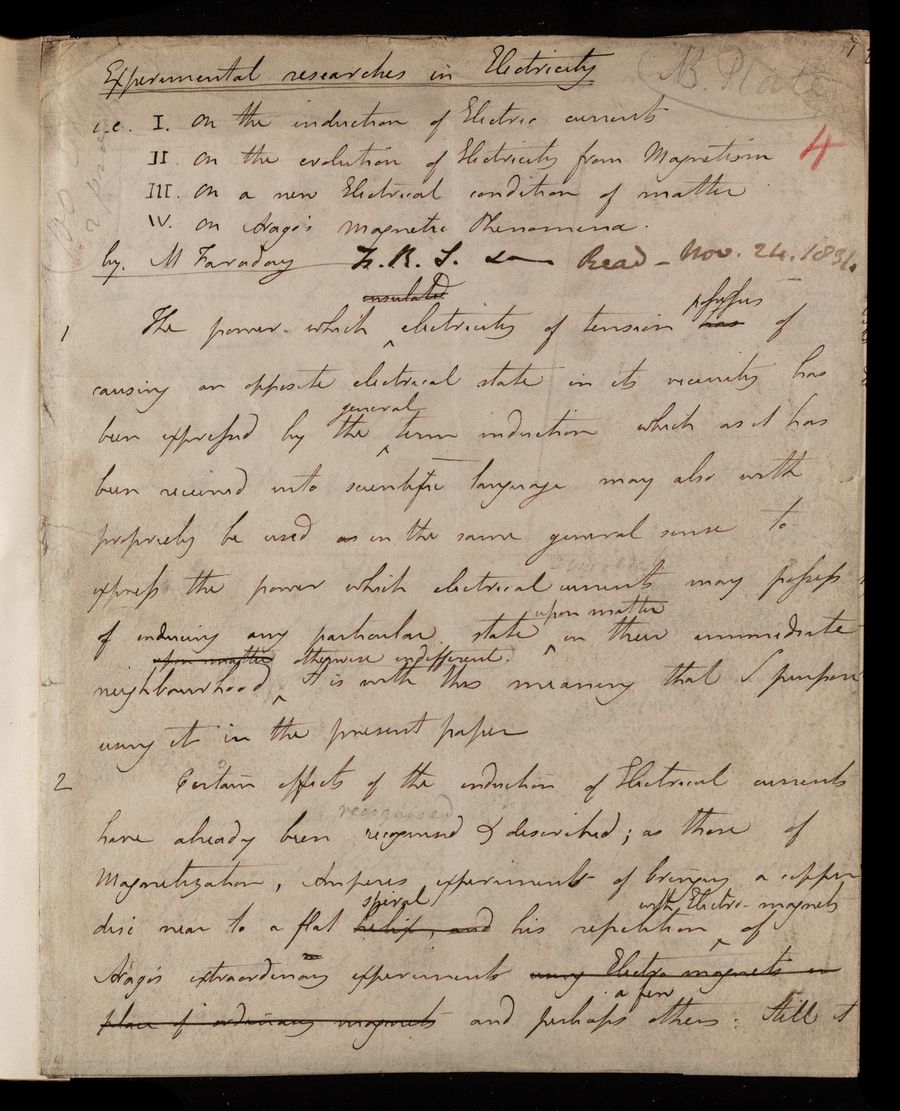 Experimental researches in Electricity
MB. Plate
i.e. I. On the induction of Electric currents
II. On the evolution of Electricity from Magnetism
4
III. On a new Electrical condition of matter
IV. On Arago's magnetic Phenomena.
by. M Faraday F.R.S. &c Read - Nov. 24. 1831.
insulated
possesses
1 The power which electricity of tension has of
causing an opposite electrical state in its vicinity has
general
been expressed by the term induction which as it has
been received into scientific language may also with
propriety be used as in the same general sense to
express the power which electrical currents may possess
upon matter
of inducing any particular state in their immediate
upon matter otherwise indifferent.
neighbourhood. It is with this meaning that I purpose
using it in the present paper
2 Certain effects of the induction of Electrical currents
recognised
have already been recognised & described; as those of
Magnetization, Amperes experiments of bringing a copper
spiral with Electro-magnets
disc near to a flat helix, and his repetition of
Arago's extraordinary experiments using Electro magnets in
a few
place of ordinary magnets and perhaps others. Still it